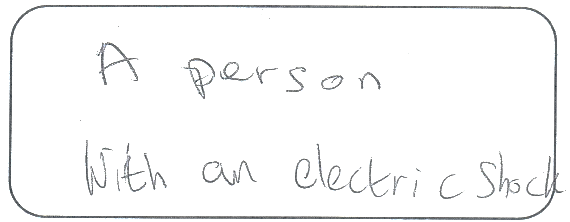 A person
With an electric shock